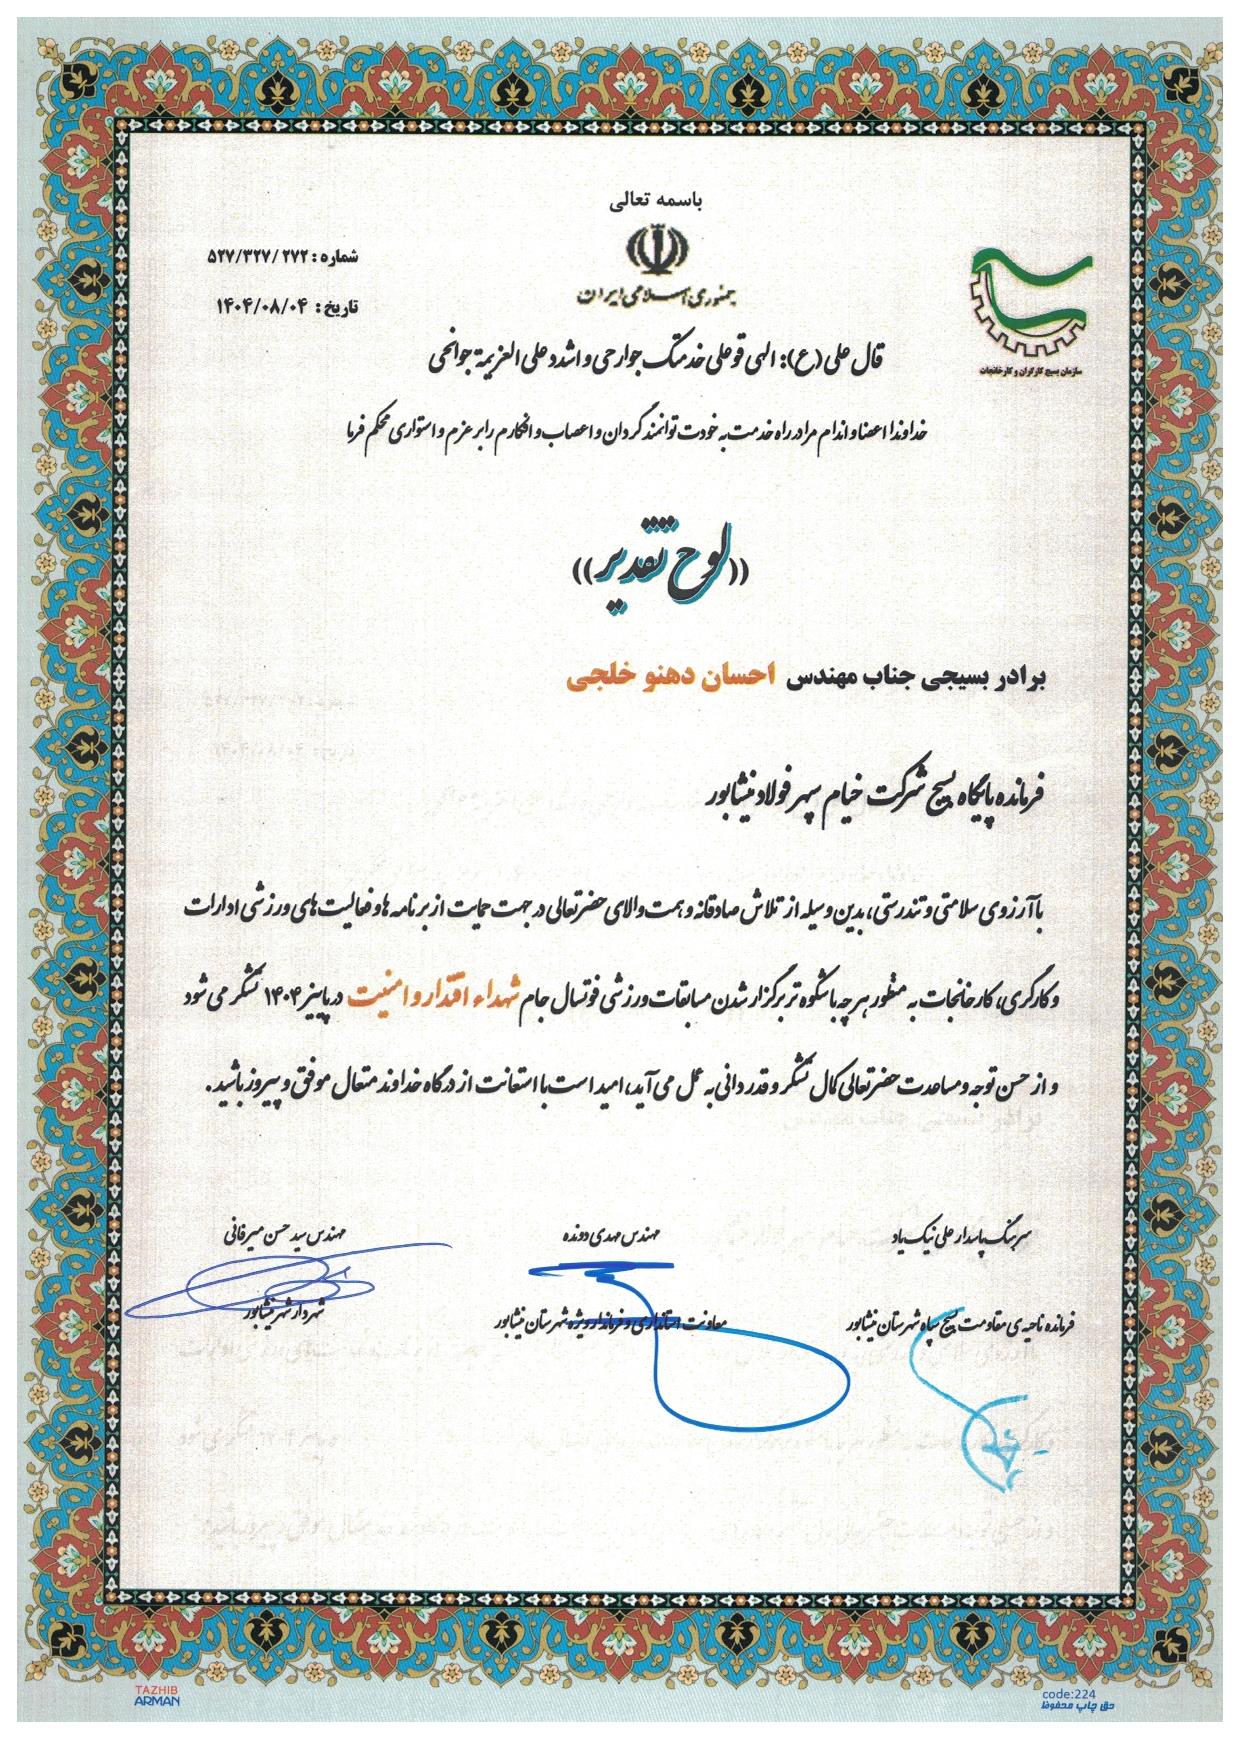 باسمه تعالی
جمهوری اسلامی ایران
شماره : ۵۲۷/۳۲۷/۲۷۲
تاریخ : ۱۴۰۴/۰۸/۰۴
سازمان بسیج کارگران و کارخانجات
قال علی (ع): الهی قو علی خدمتک جوارحی و اشدد علی العزیمة جوانحی
خداوندا اعضا و اندام مرا در راه خدمت به خودت توانمند گردان و اعصاب و افکارم را بر عزم و استواری محکم فرما
((لوح تقدیر))
برادر بسیجی جناب مهندس احسان دهنو خلجی
فرمانده پایگاه بسیج شرکت خیام سپهر فولاد نیشابور
با آرزوی سلامتی و تندرستی، بدین وسیله از تلاش صادقانه و همت والای حضرتعالی در جهت حمایت از برنامه ها و فعالیت های ورزشی ادارات
و کارگری، کارخانجات به منظور هر چه با شکوه تر برگزار شدن مسابقات ورزشی فوتسال جام شهداء اقتدار و امنیت در پاییز ۱۴۰۴ تشکر می شود
و از حسن توجه و مساعدت حضرتعالی کمال تشکر و قدردانی به عمل می آید، امید است با استعانت از درگاه خداوند متعال موفق و پیروز باشید.
سرهنگ پاسدار علی نیک یاد
مهندس مهدی دونده
مهندس سید حسن میرفانی
فرمانده ناحیه ی مقاومت بسیج سپاه شهرستان نیشابور
معاونت استانداری و فرماندار ویژه شهرستان نیشابور
شهردار شهر نیشابور
TAZHIB
ARMAN
code:224
حق چاپ محفوظ